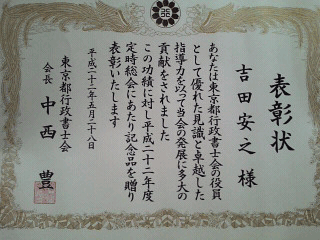 表彰状
吉田安之 様
あなたは東京都行政書士会の役員
として優れた見識と卓越した
指導力を以って当会の発展に多大の
貢献をされました
この功績に対し平成二十二年度
定時総会にあたり記念品を贈り
表彰いたします
平成二十二年五月二十八日
東京都行政書士会
会長 中西 豊